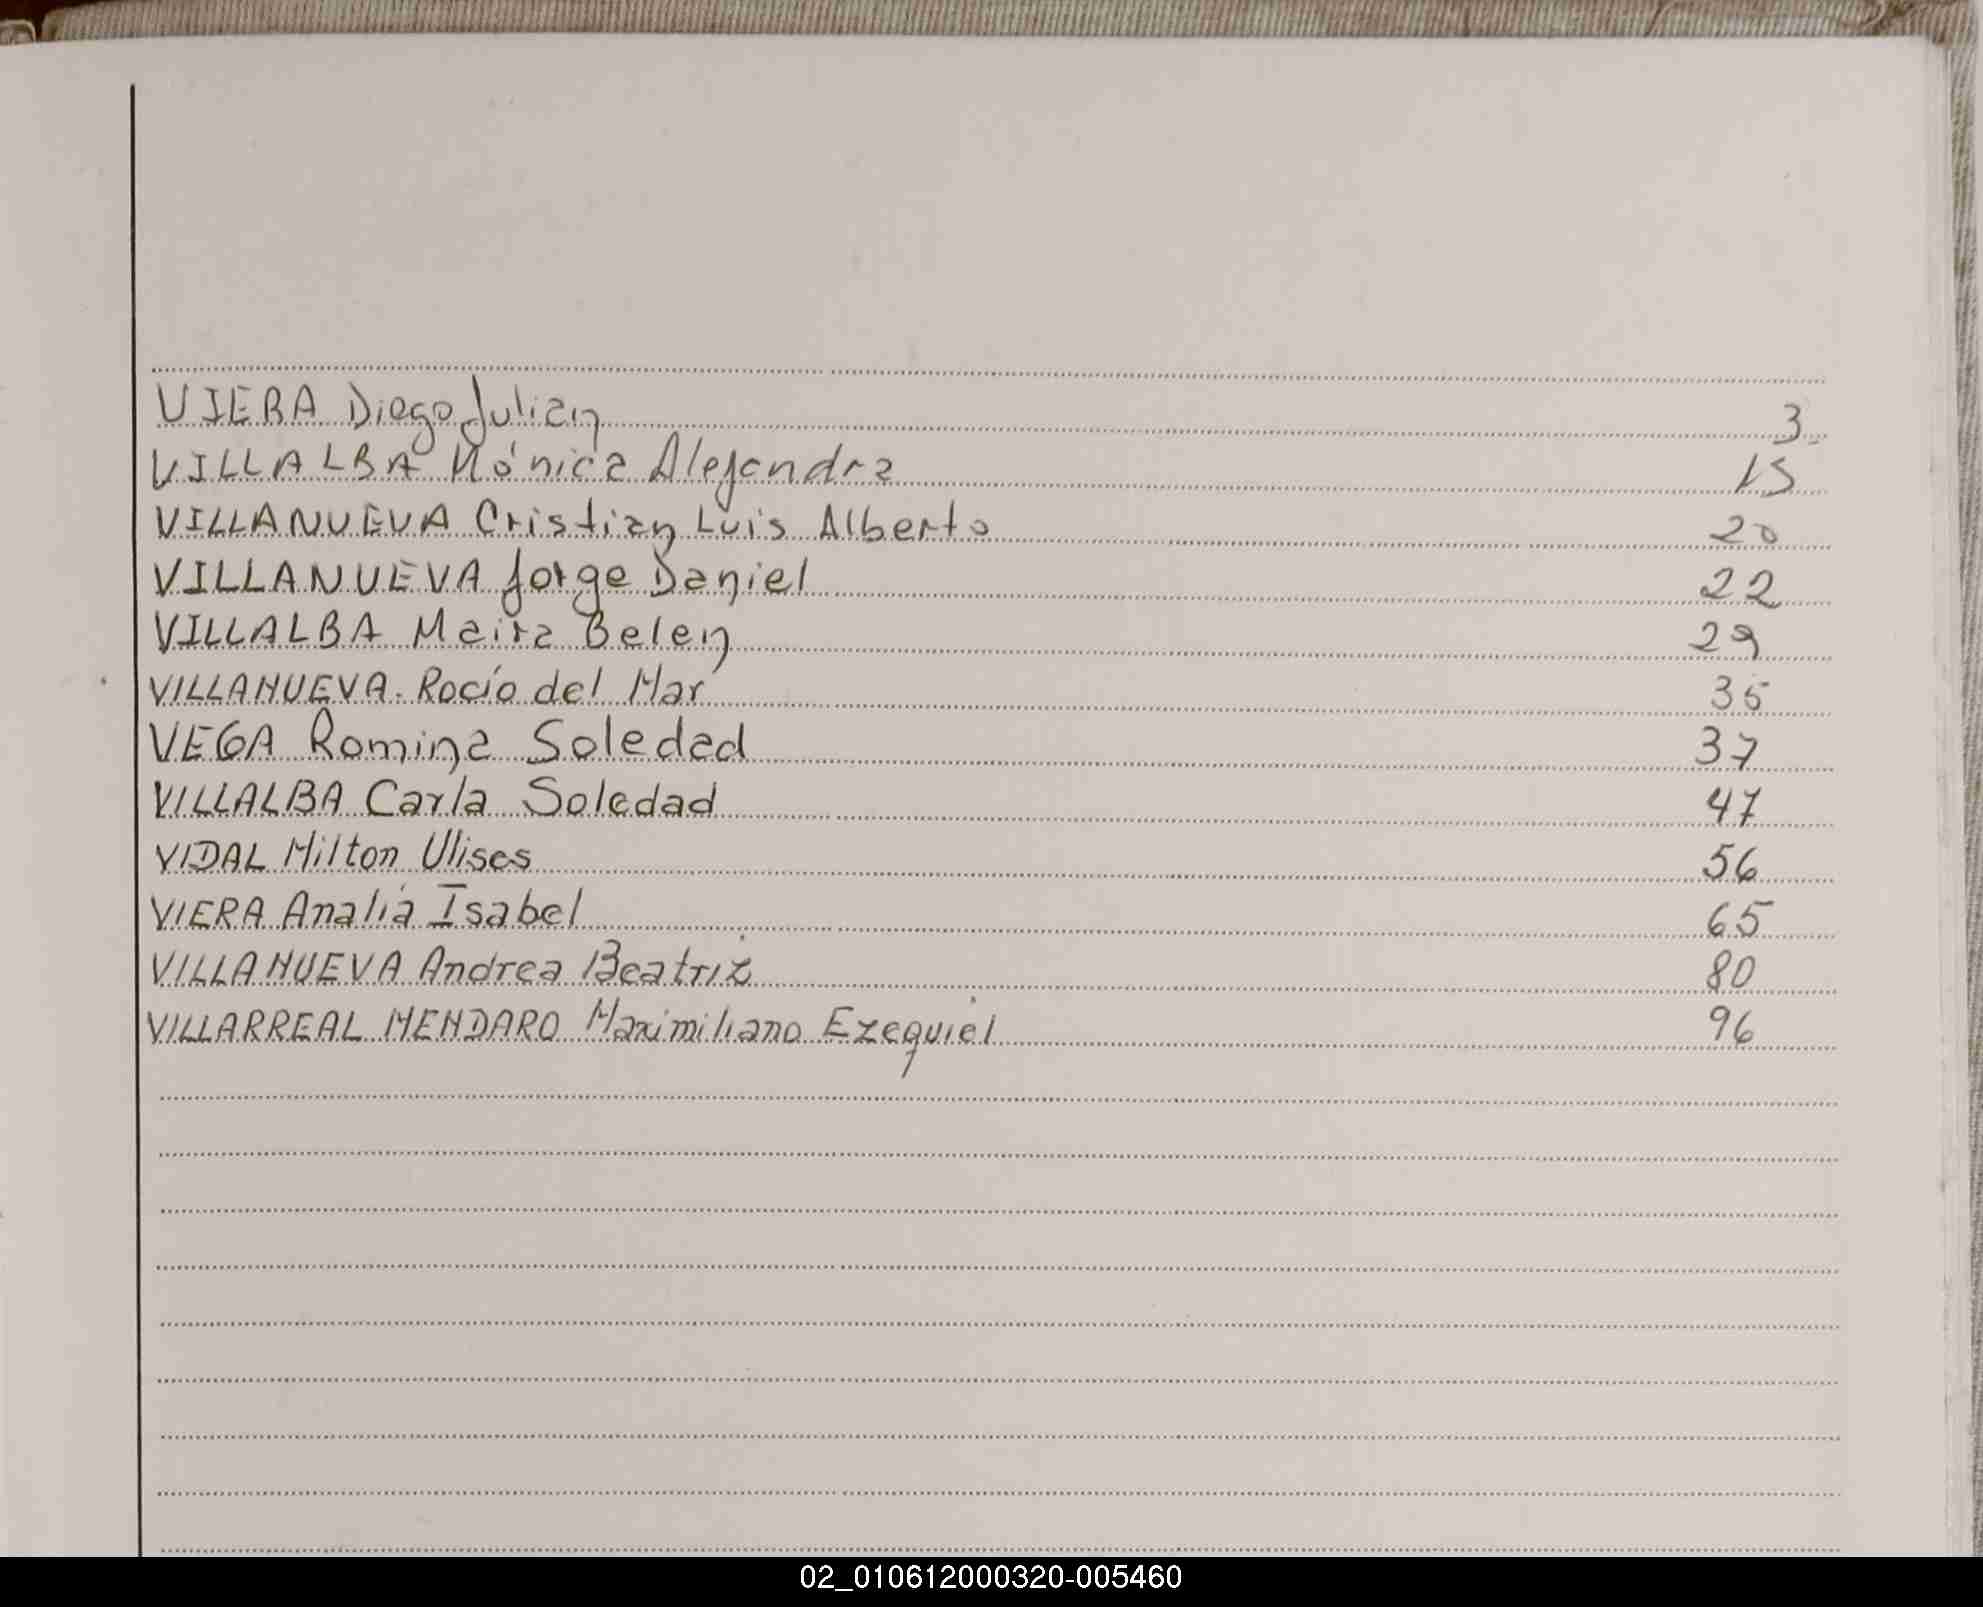 VIERA Diego Julian 3
VILLALBA Mónica Alejandra 15
VILLANUEVA Cristian Luis Alberto 20
VILLANUEVA Jorge Daniel 22
VILLALBA Maira Belen 29
VILLANUEVA Rocío del Mar 35
VEGA Romina Soledad 37
VILLALBA Carla Soledad 47
VIDAL Milton Ulises 56
VIERA Analía Isabel 65
VILLANUEVA Andrea Beatriz 80
VILLARREAL MENDARO Maximiliano Ezequiel 96
02_010612000320-005460